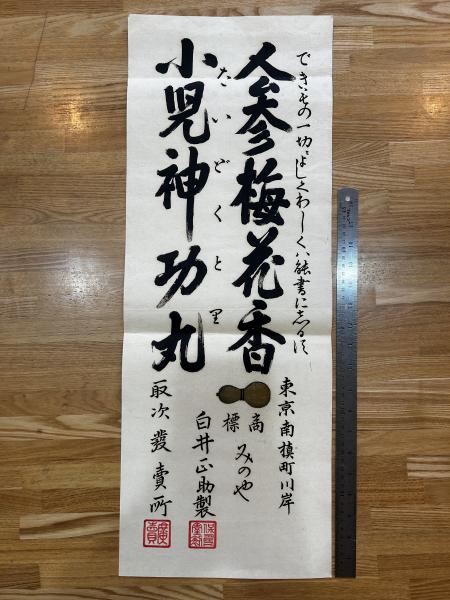 できもの一切によしくわしくハ能書にしるす
人参梅花香
たいどくと里
小児神功丸
東京南槙町川岸
商標
みのや
白井正助製
取次發賣所